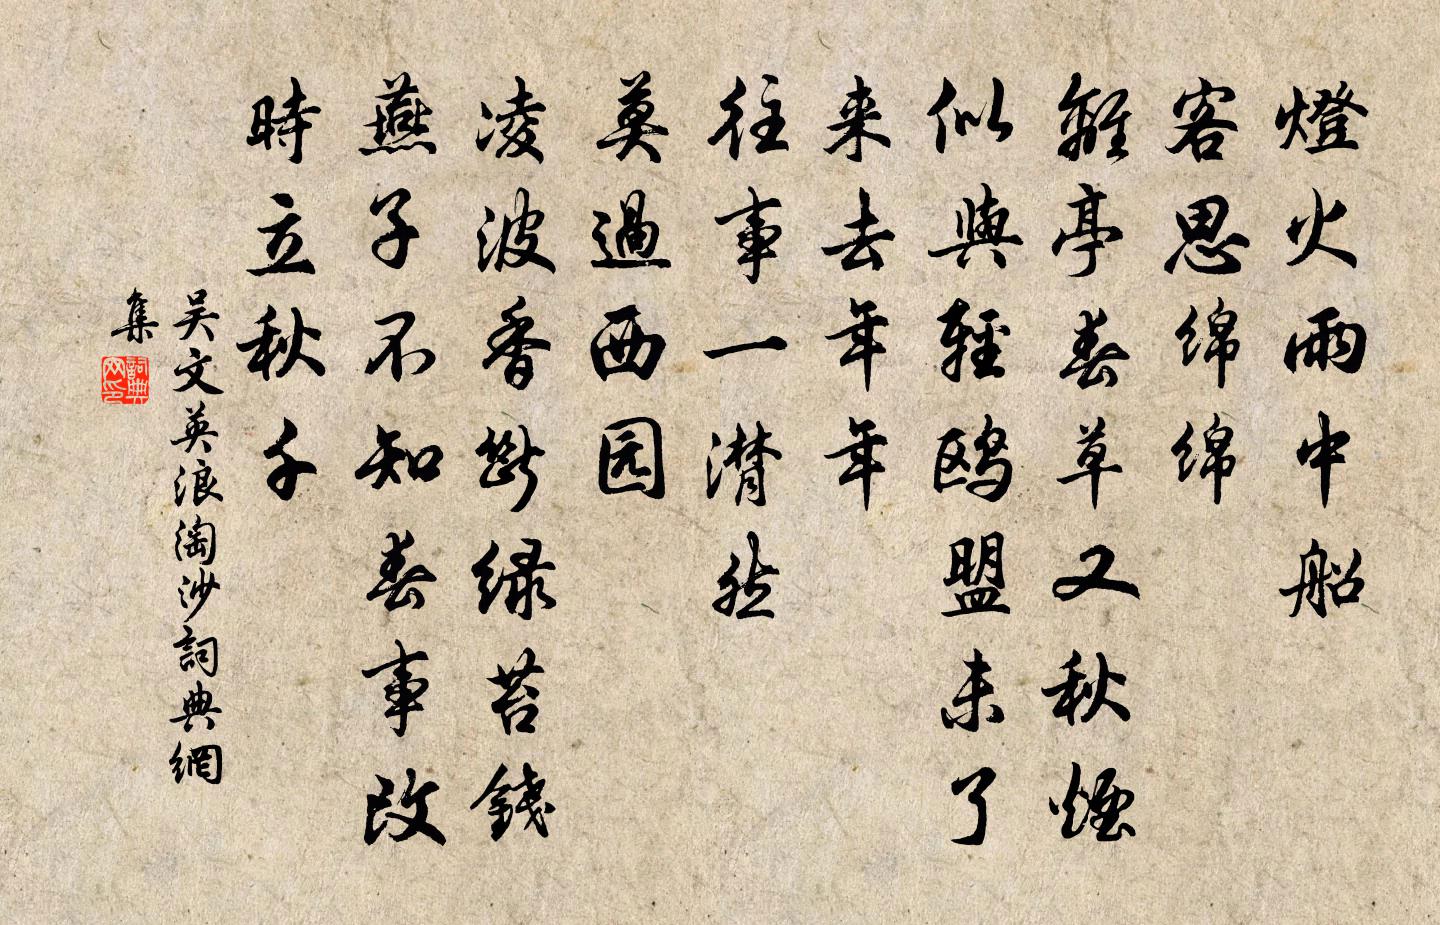 燈火雨中船
客思綿綿
離亭春草又秋煙
似與輕鷗盟未了
来去年年
往事一潸然
莫過西园
凌波香斷緑苔錢
燕子不知春事改
時立秋千
吴文英浪淘沙詞典網
集
詞典網印